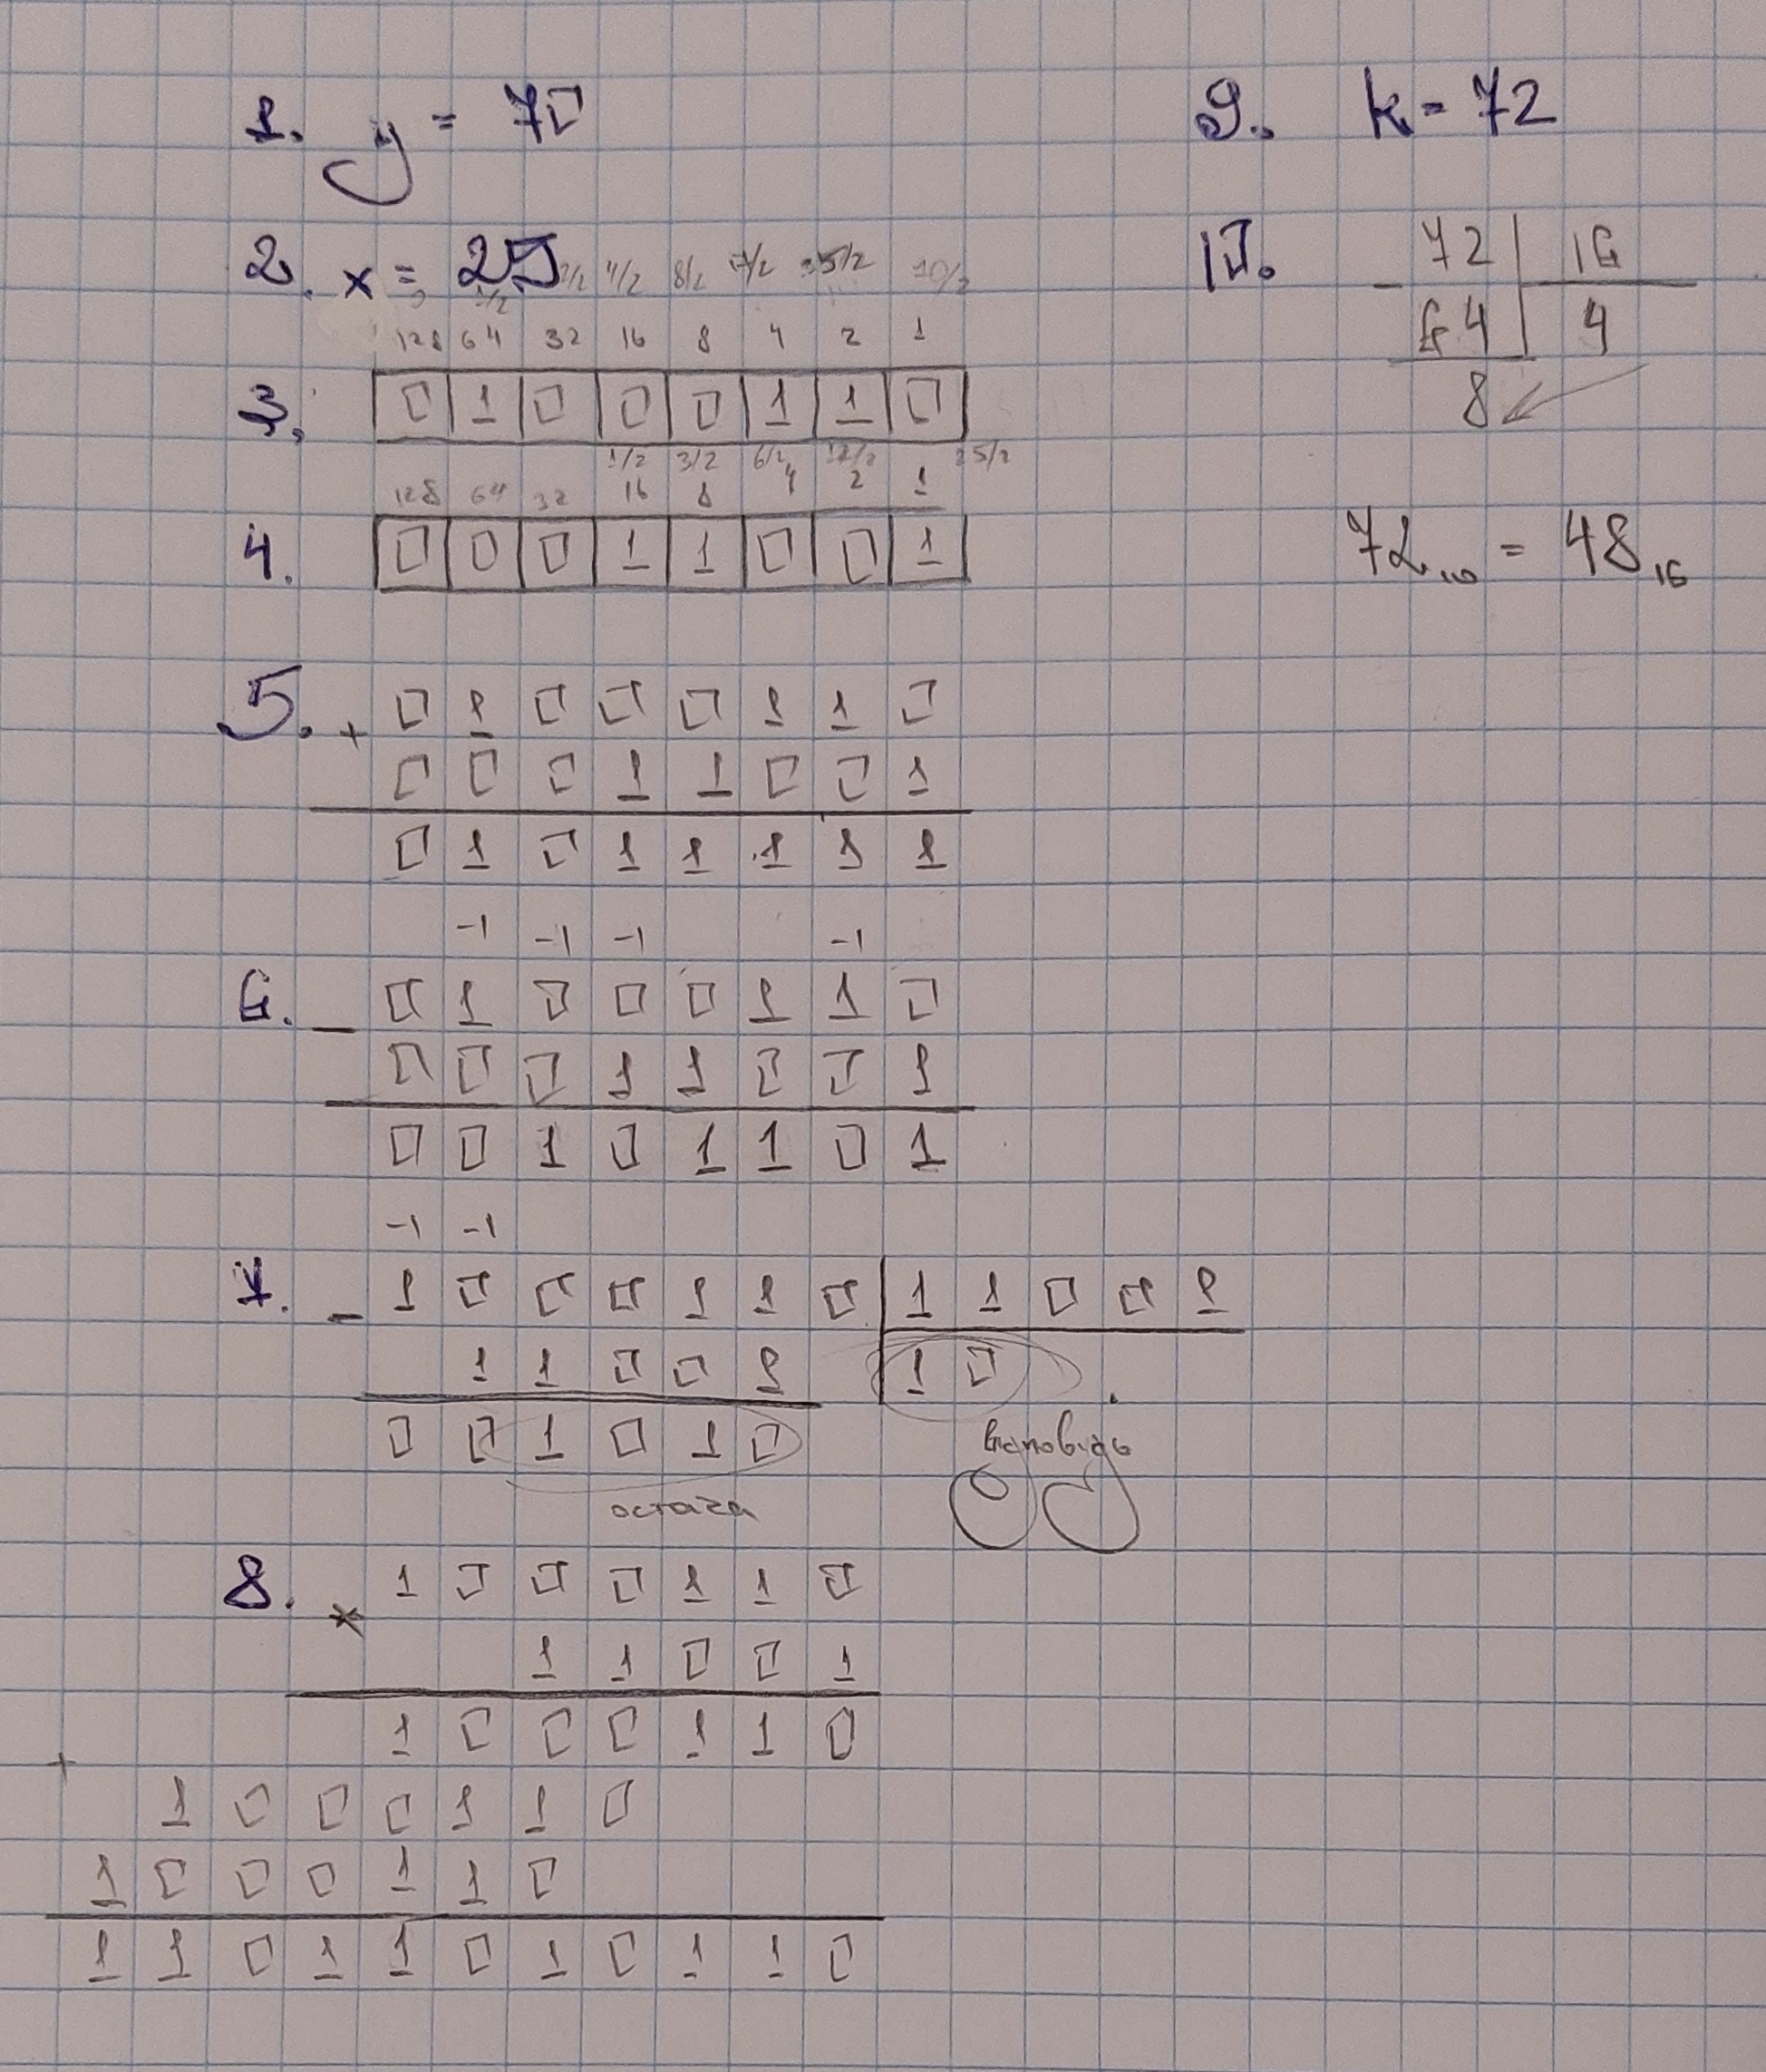 1. y = 70
2. x = 25 1/2 2/2 4/2 8/2 17/2 35/2 70/2
128 64 32 16 8 4 2 1
3. 0 1 0 0 0 1 1 0
1/2 3/2 6/2 12/2 25/2
128 64 32 16 8 4 2 1
4. 0 0 0 1 1 0 0 1
5. + 0 1 0 0 0 1 1 0
0 0 0 1 1 0 0 1
0 1 0 1 1 1 1 1
-1 -1 -1 -1
6. - 0 1 0 0 0 1 1 0
0 0 0 1 1 0 0 1
0 0 1 0 1 1 0 1
-1 -1
7. - 1 0 0 0 1 1 0 1 1 0 0 1
1 1 0 0 1 1 0
0 0 1 0 1 0 відповідь
остача
8. * 1 0 0 0 1 1 0
1 1 0 0 1
1 0 0 0 1 1 0
+
1 0 0 0 1 1 0
1 0 0 0 1 1 0
1 1 0 1 1 0 1 0 1 1 0
9. k = 72
10. - 72 16
64 4
8
72₁₀ = 48₁₆